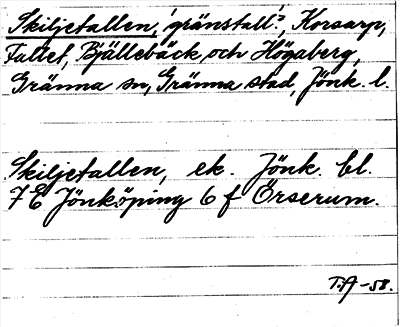 Skiljetallen, 'gränstall'?, Korsarp,
Fallet, Bjällebäck och Högaberg,
Gränna sn, Gränna stad, Jönk. l.
Skiljetallen, ek. Jönk. bl.
7 E Jönköping 6 f Örserum.
T.A -58.